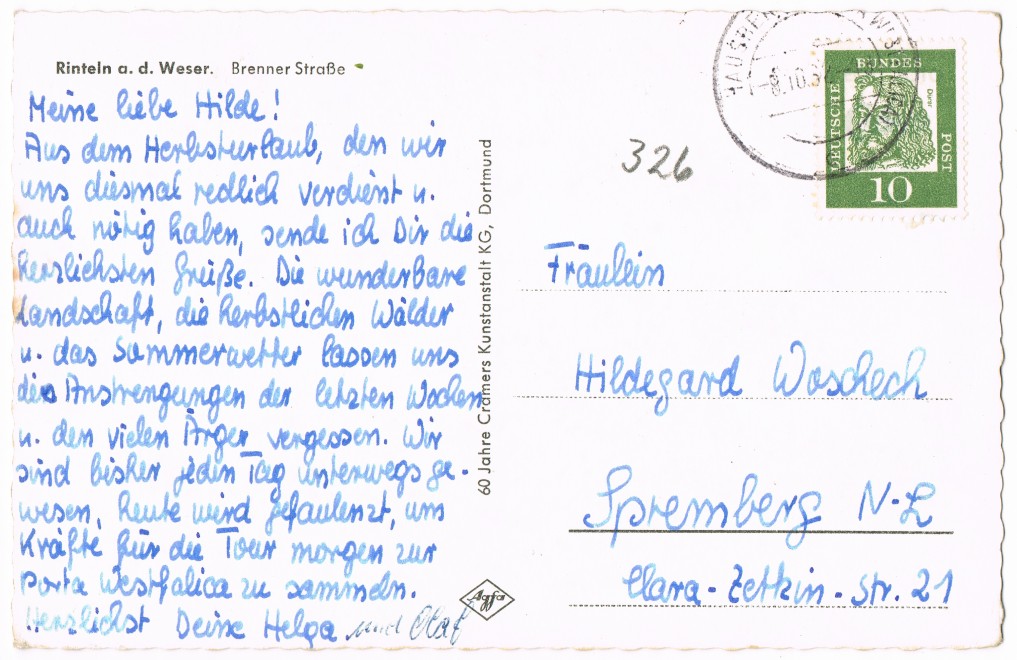 Rinteln a. d. Weser. Brenner Straße
Meine liebe Hilde!
Aus dem Herbsturlaub, den wir
uns diesmal redlich verdient u.
auch nötig haben, sende ich Dir die
herzlichsten Grüße. Die wunderbare
Landschaft, die herbstlichen Wälder
u. das Sommerwetter lassen uns
die Anstrengungen der letzten Wochen
u. den vielen Ärger vergessen. Wir
sind bisher jeden Tag unterwegs ge-
wesen, heute wird gefaulenzt, um
Kräfte für die Tour morgen zur
Porta Westfalica zu sammeln.
Herzlichst Deine Helga und Olaf
60 Jahre Cramers Kunstanstalt KG, Dortmund
Agfa
326
DEUTSCHE
BUNDES
POST
Dürer
10
Fräullin
Hildegard Woschech
Spremberg N-L
Clara-Zetkin-Str. 21